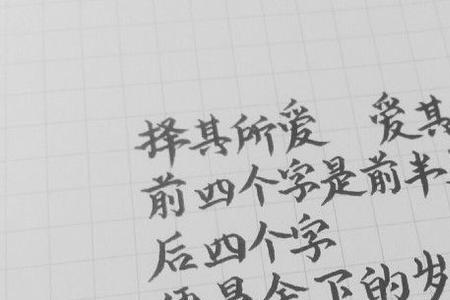 择其所爱 爱其
前四个字是前半
后四个字
是余下的岁